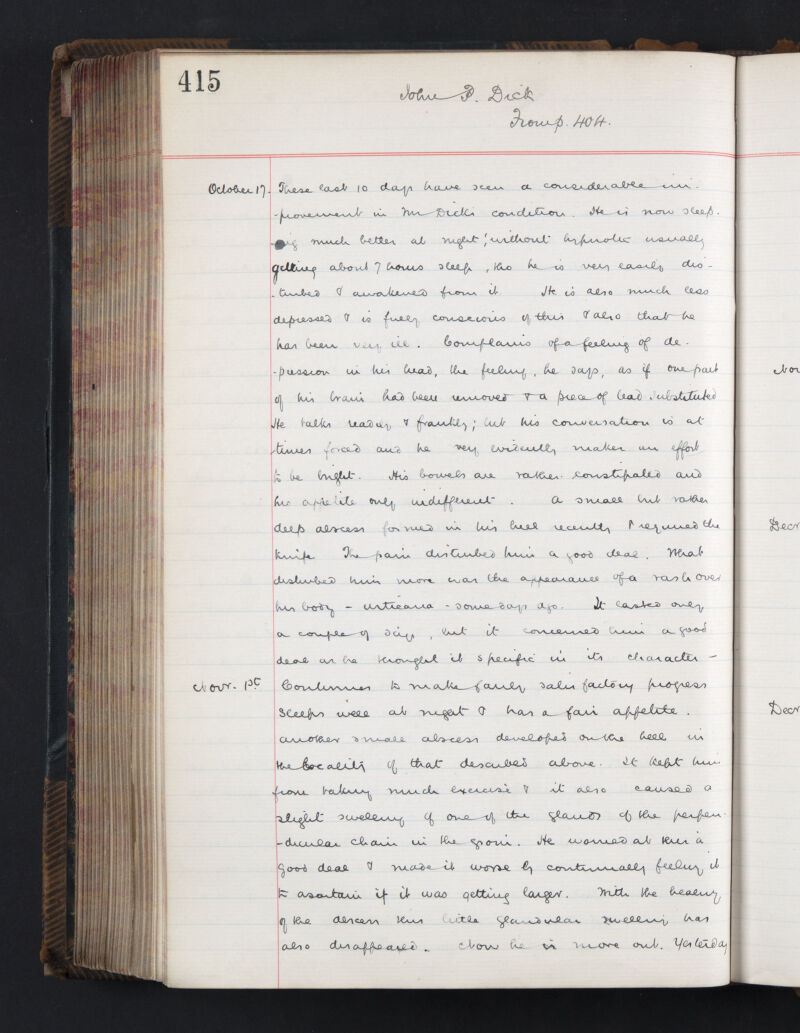 415
John P. Dick
From p. 404.
October 17. These last 10 days have seen a considerable im-
-provement in Mr Dicks condition. He is now sleep-
-ing much better at night, without hypnotic usually
getting about 7 hours sleep, tho he is very easily dis-
-turbed & awakened from it. He is also much less
depressed & is fully conscious of this & also that he
has been very ill. Complains of a feeling of de-
-pression in his head, the feeling, he says, as if one part
of his brain had been removed & a piece of lead substituted
He talks readily & frankly; but his conversation is at
times forced and he very evidently makes an effort
to be bright. His bowels are rather constipated and
his appetite only indifferent. A small but rather
deep abscess formed in his heel recently & required the
knife The pain disturbed him a good deal. What
disturbed him more was the appearance of a rash over
his body - urticaria - some days ago. It lasted only
a couple of days, but it concerned him a good
deal as he thought it specific in its character -
Novr. 1st Continues to make fairly satisfactory progress
Sleeps well at night & has a fair appetite.
Another small abscess developed on the heel in
the locality of that described above. It kept him
from taking much exercise & it also caused a
slight swelling of one of the glands of the perpen-
-dicular chain in the groin. He worried at this a
good deal & made it worse by continually feeling it
to ascertain if it was getting larger. With the healing
of the abscess this little glandular swelling has
also disappeared. Now he is more out. Yesterday
Nov
Decr
Decr